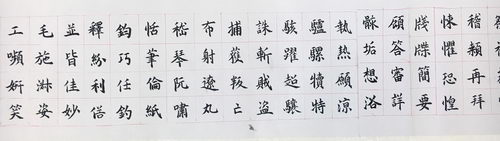 稽顙再拜
悚懼恐惶
牋牒簡要
顧答審詳
骸垢想浴
執熱願涼
驢騾犢特
駭躍超驤
誅斬賊盜
捕獲叛亡
布射遼丸
嵇琴阮嘯
恬筆倫紙
鈞巧任釣
釋紛利俗
並皆佳妙
毛施淑姿
工嚬妍笑